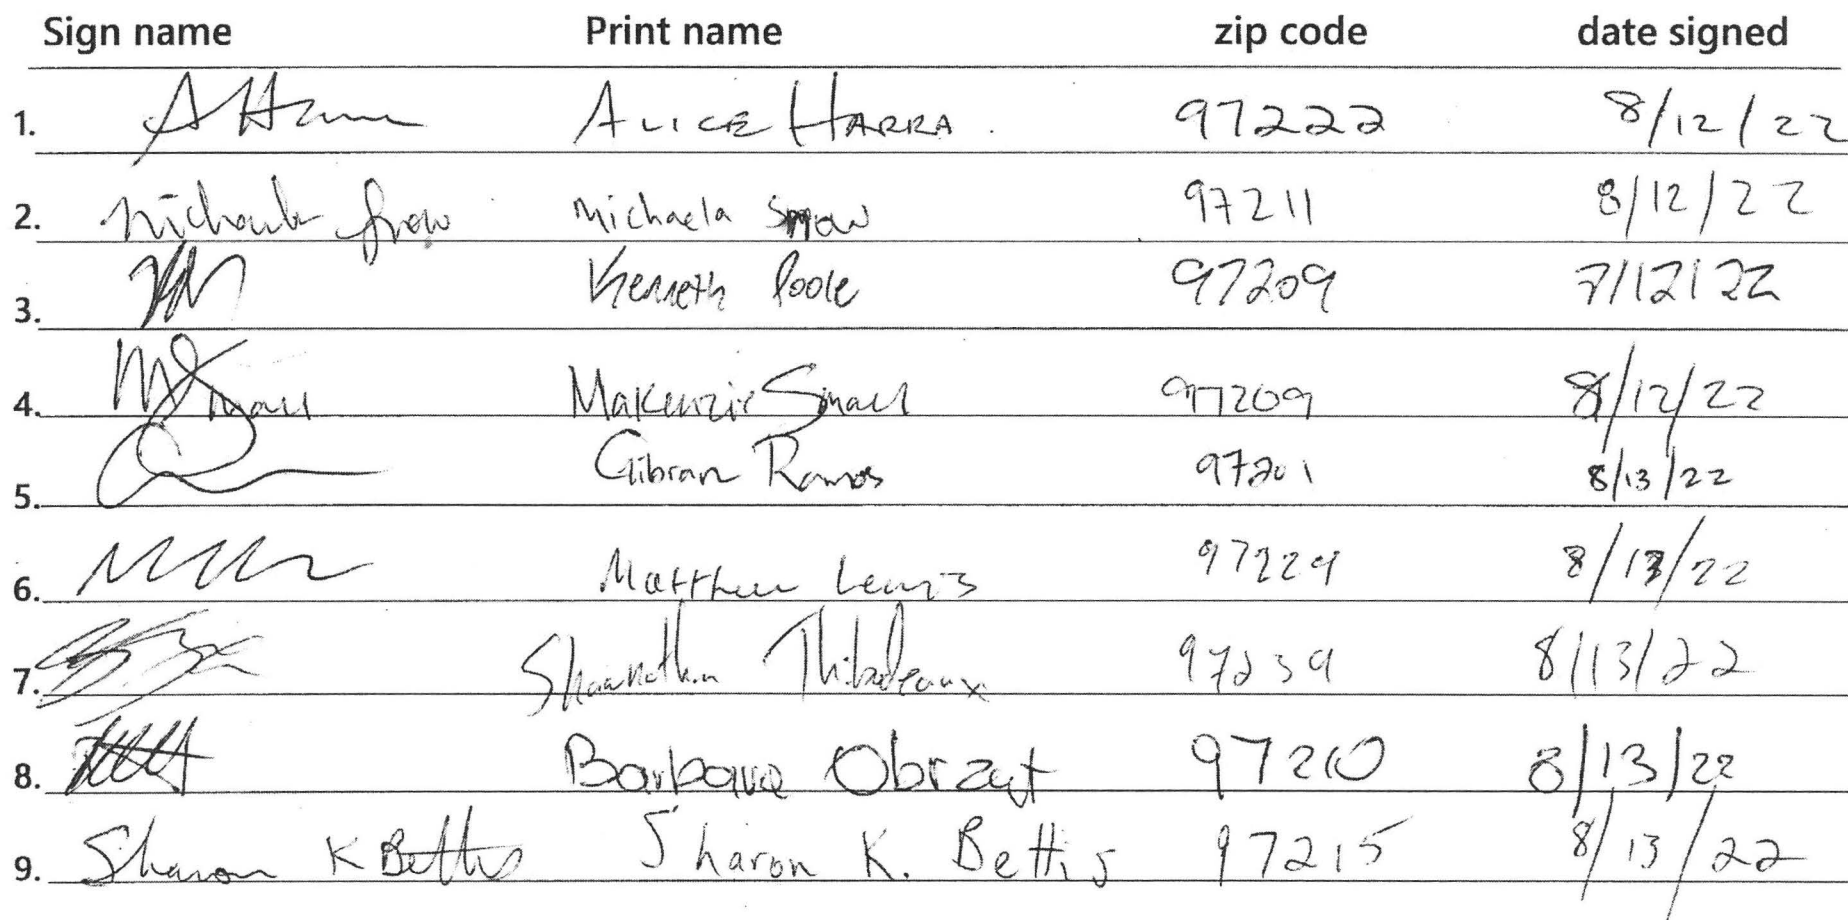 Sign name Print name zip code date signed
1. ALICE HARRA. 97222 8/12/22
2. Michaela Snow Michaela Snow 97211 8/12/22
3. Kenneth Poole 97209 7/12/22
4. M Small Makenzie Small 97209 8/12/22
5. Gibran Ramos 97201 8/13/22
6. Matthew Lewis 97229 8/13/22
7. Thibodeaux 97239 8/13/22
8. Barbara Obrzut 97210 8/13/22
9. Sharon K Bettis Sharon K. Bettis 97215 8/13/22